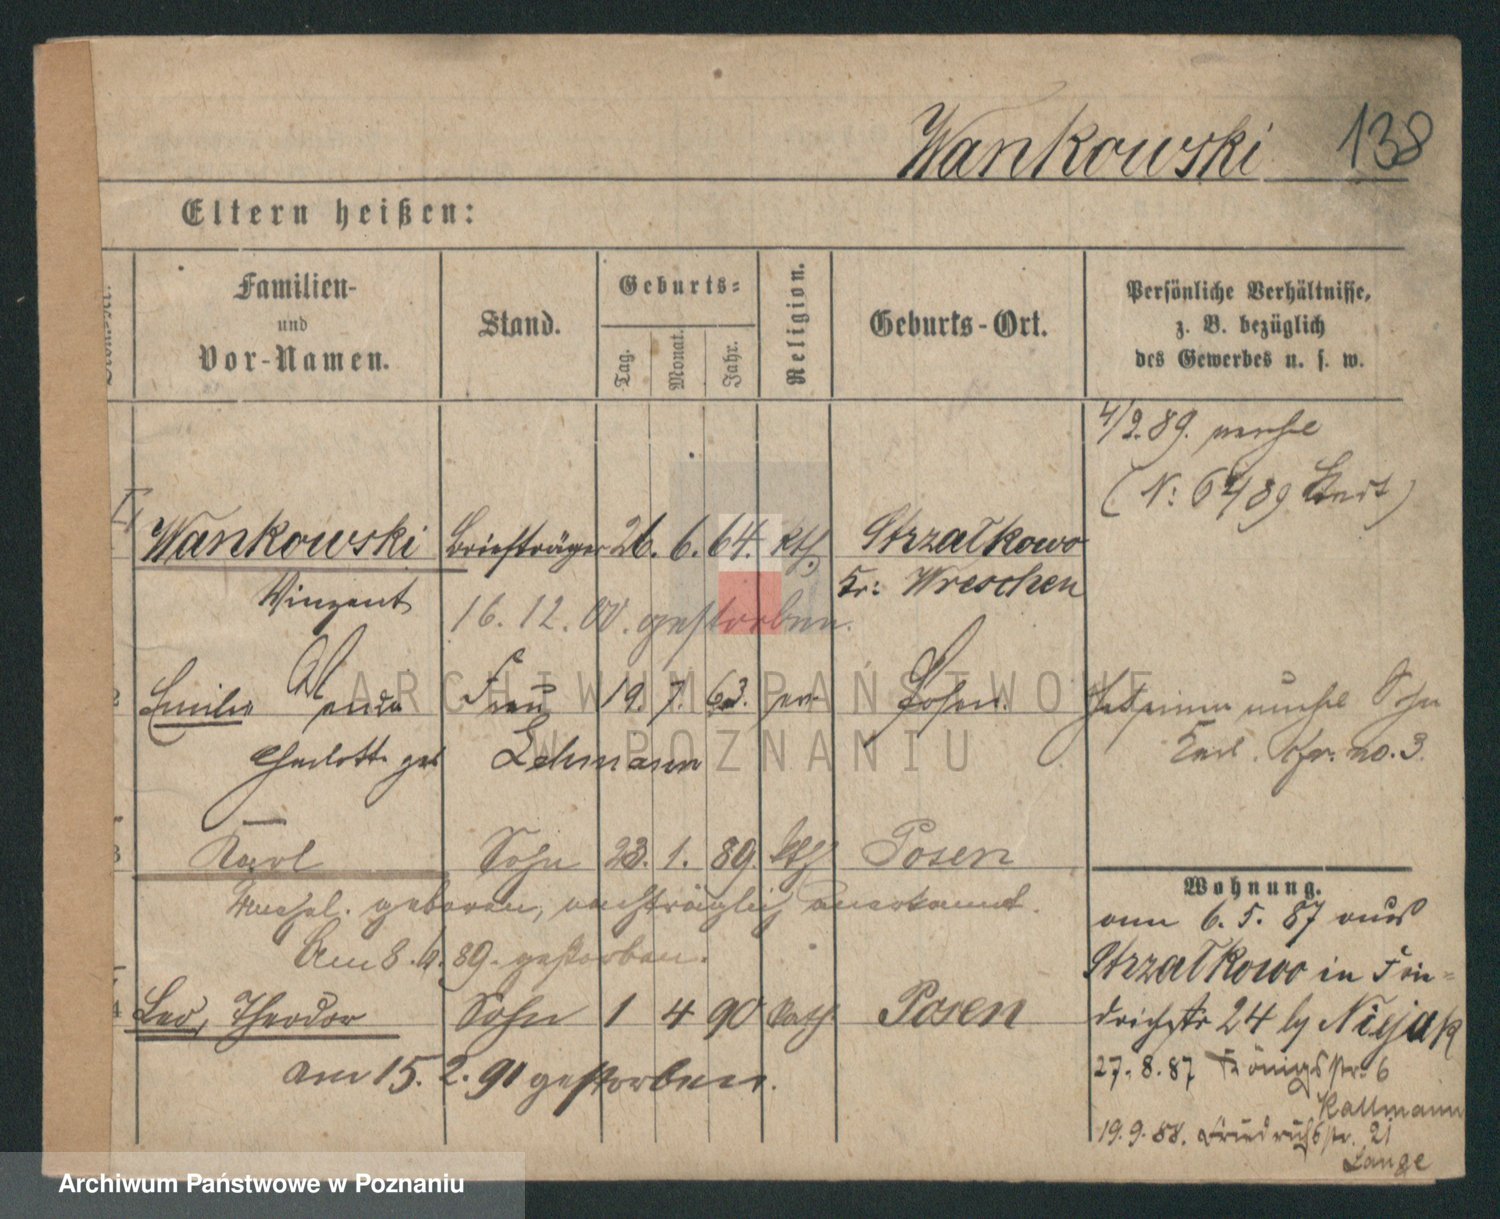 Wankowski 138
Eltern heißen:
Familien-
und
Vor-Namen.
Stand.
Geburts-
Tag.
Monat.
Jahr.
Religion.
Geburts-Ort.
Persönliche Verhältnisse,
z. B. bezüglich
des Gewerbes u. s. w.
4/2.89.
(N: 6489
Wankowski Briefträger 26. 6. 64. kth. Strzalkowo
Vinzent Kr: Wreschen
16. 12. 00. gestorben.
2 Emilie Frau 19. 7. 63. ev Posen. Hat einen unehl Sohn
Charlotte geb Lehmann Karl. no. 3.
3 Karl Sohn 23. 1. 89. kth Posen
Unehel. geboren, nachträglich anerkannt.
Am 8. 4. 89. gestorben.
4 Leo, Theodor Sohn 1 4 90 kath Posen
am 15. 2. 91 gestorben.
Wohnung.
am 6. 5. 87 aus
Strzalkowo in Frie-
drichstr 24 by Niejak
27. 8. 87 Königsstr. 6
Kallmann
19. 9. 88. Friedrichstr. 21
Lange
ARCHIWUM PAŃSTWOWE
W POZNANIU
Archiwum Państwowe w Poznaniu